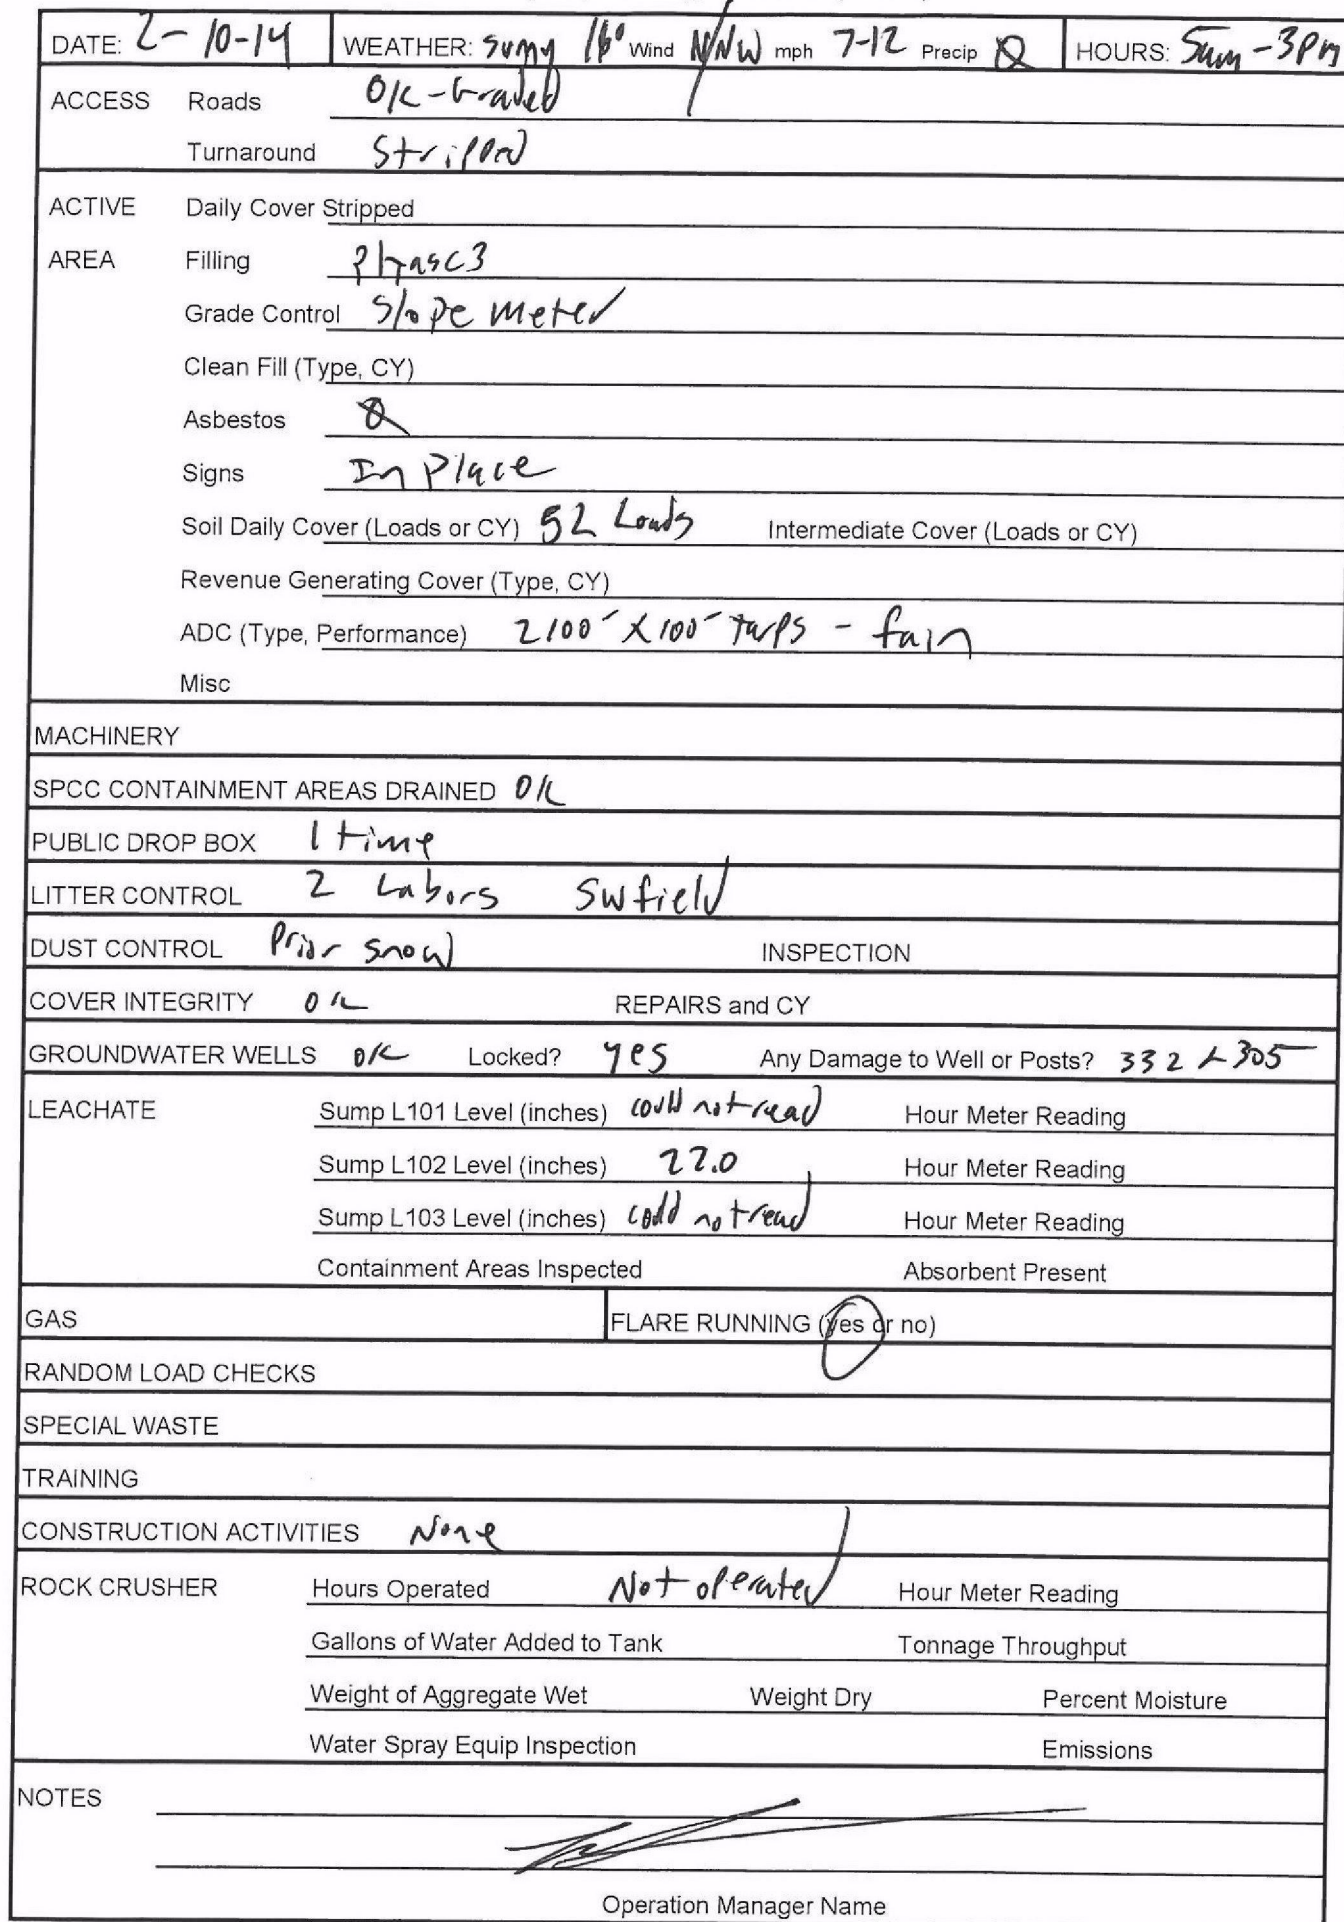 DATE: 2-10-14 WEATHER: Sunny 16° Wind N/NW mph 7-12 Precip 0 HOURS: 5am-3pm
ACCESS Roads OK-Graded
Turnaround Stripped
ACTIVE Daily Cover Stripped
AREA Filling Phase 3
Grade Control Slope meter
Clean Fill (Type, CY)
Asbestos 0
Signs In Place
Soil Daily Cover (Loads or CY) 52 Loads Intermediate Cover (Loads or CY)
Revenue Generating Cover (Type, CY)
ADC (Type, Performance) 2 100' X 100' tarps - fair
Misc
MACHINERY
SPCC CONTAINMENT AREAS DRAINED OK
PUBLIC DROP BOX 1 time
LITTER CONTROL 2 Labors SW field
DUST CONTROL Prior snow INSPECTION
COVER INTEGRITY OK REPAIRS and CY
GROUNDWATER WELLS OK Locked? yes Any Damage to Well or Posts? 332 & 305
LEACHATE Sump L101 Level (inches) could not read Hour Meter Reading
Sump L102 Level (inches) 22.0 Hour Meter Reading
Sump L103 Level (inches) could not read Hour Meter Reading
Containment Areas Inspected Absorbent Present
GAS FLARE RUNNING (yes or no)
RANDOM LOAD CHECKS
SPECIAL WASTE
TRAINING
CONSTRUCTION ACTIVITIES None
ROCK CRUSHER Hours Operated Not operated Hour Meter Reading
Gallons of Water Added to Tank Tonnage Throughput
Weight of Aggregate Wet Weight Dry Percent Moisture
Water Spray Equip Inspection Emissions
NOTES
Operation Manager Name